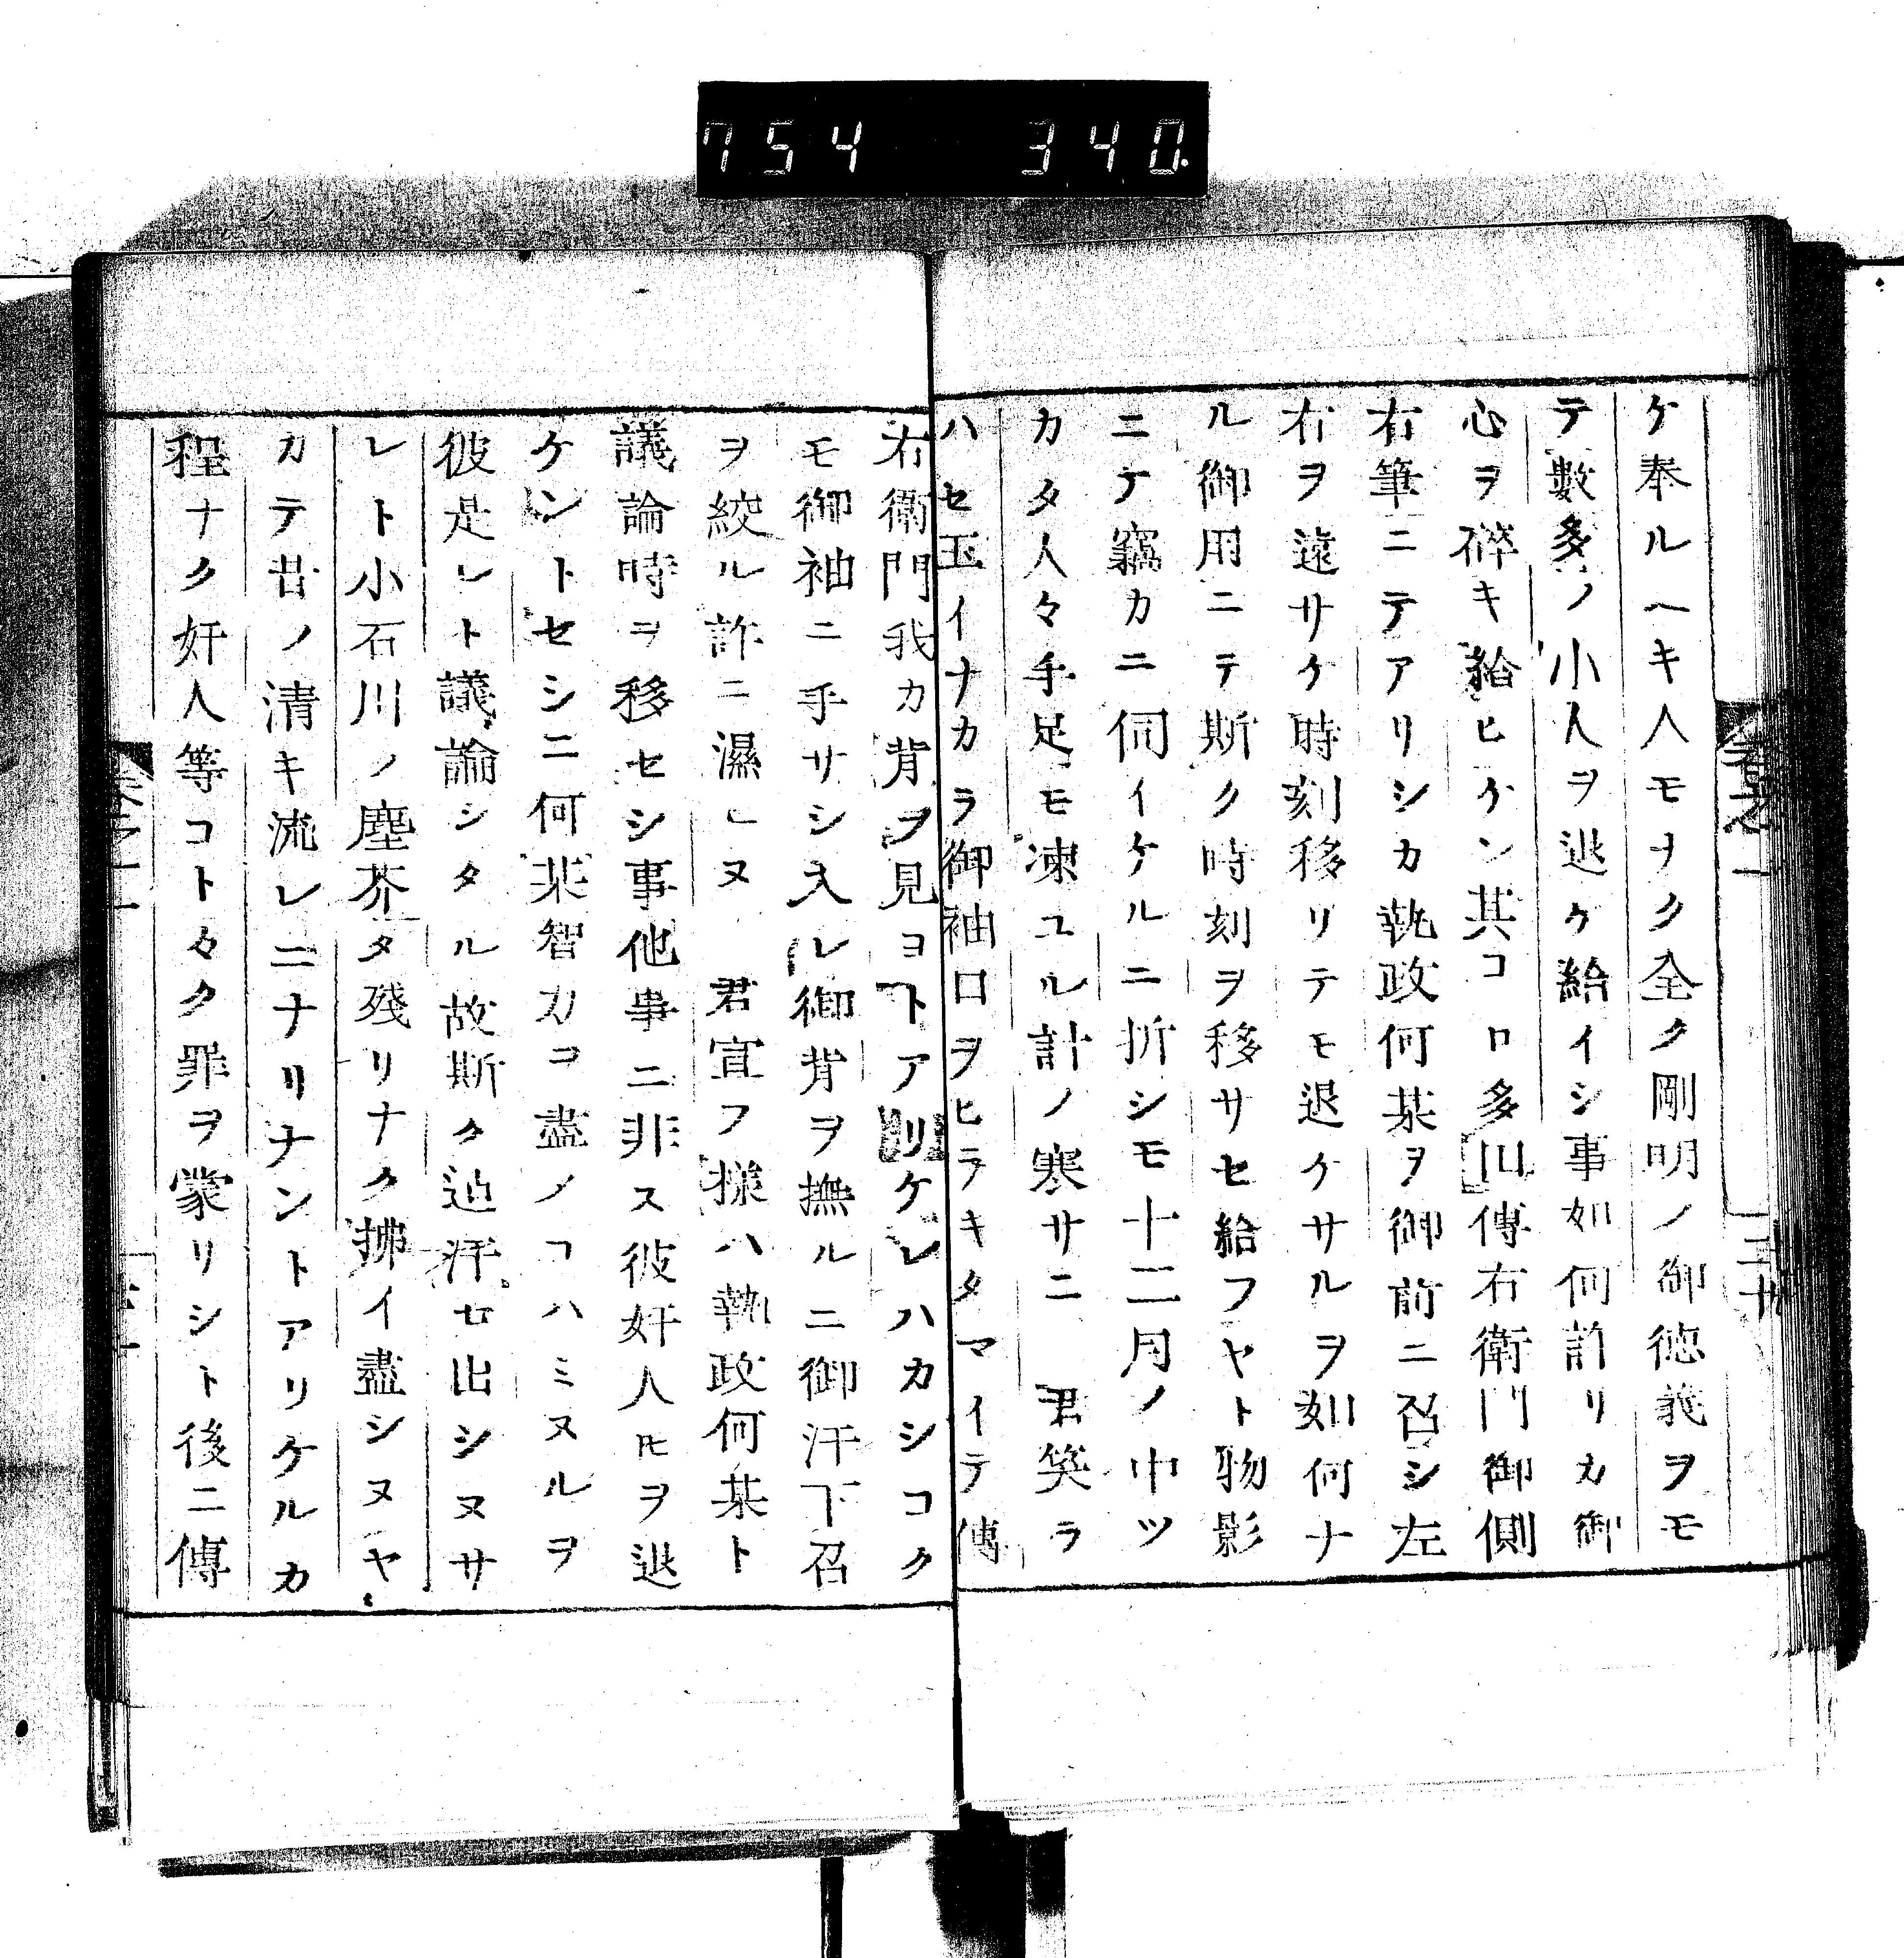 754 340
ケ奉ルヘキ人モナク全ク剛明ノ御徳義ヲモ
テ數多ノ小人ヲ退ケ給イシ事如何許リカ御
心ヲ碎キ給ヒケン其コロ多田傳右衛門御側
右筆ニテアリシカ執政何某ヲ御前ニ召シ左
右ヲ遠サケ時刻移リテモ退ケサルヲ如何ナ
ル御用ニテ斯ク時刻ヲ移サセ給フヤト物影
ニテ竊カニ伺イケルニ折シモ十二月ノ中ツ
カタ人々手足モ凍ユル計ノ寒サニ 君笑ラ
ハセ玉イナカラ御袖口ヲヒラキタマイテ傳
右衛門我カ背ヲ見ヨトアリケレハカシコク
モ御袖ニ手サシ入レ御背ヲ撫ルニ御汗下召
ヲ絞ル許ニ濕ヒヌ 君宣フ様ハ執政何某ト
議論時ヲ移セシ事他事ニ非ス彼奸人𪜈ヲ退
ケントセシニ何某智カコ盡ノコハミヌルヲ
彼是レト議論シタル故斯ク迠汗セ出シヌサ
レト小石川ノ塵芥タ残リナク拂イ盡シヌヤ
カテ昔ノ清キ流レニナリナントアリケルカ
程ナク奸人等コト々ク罪ヲ蒙リシト後ニ傳